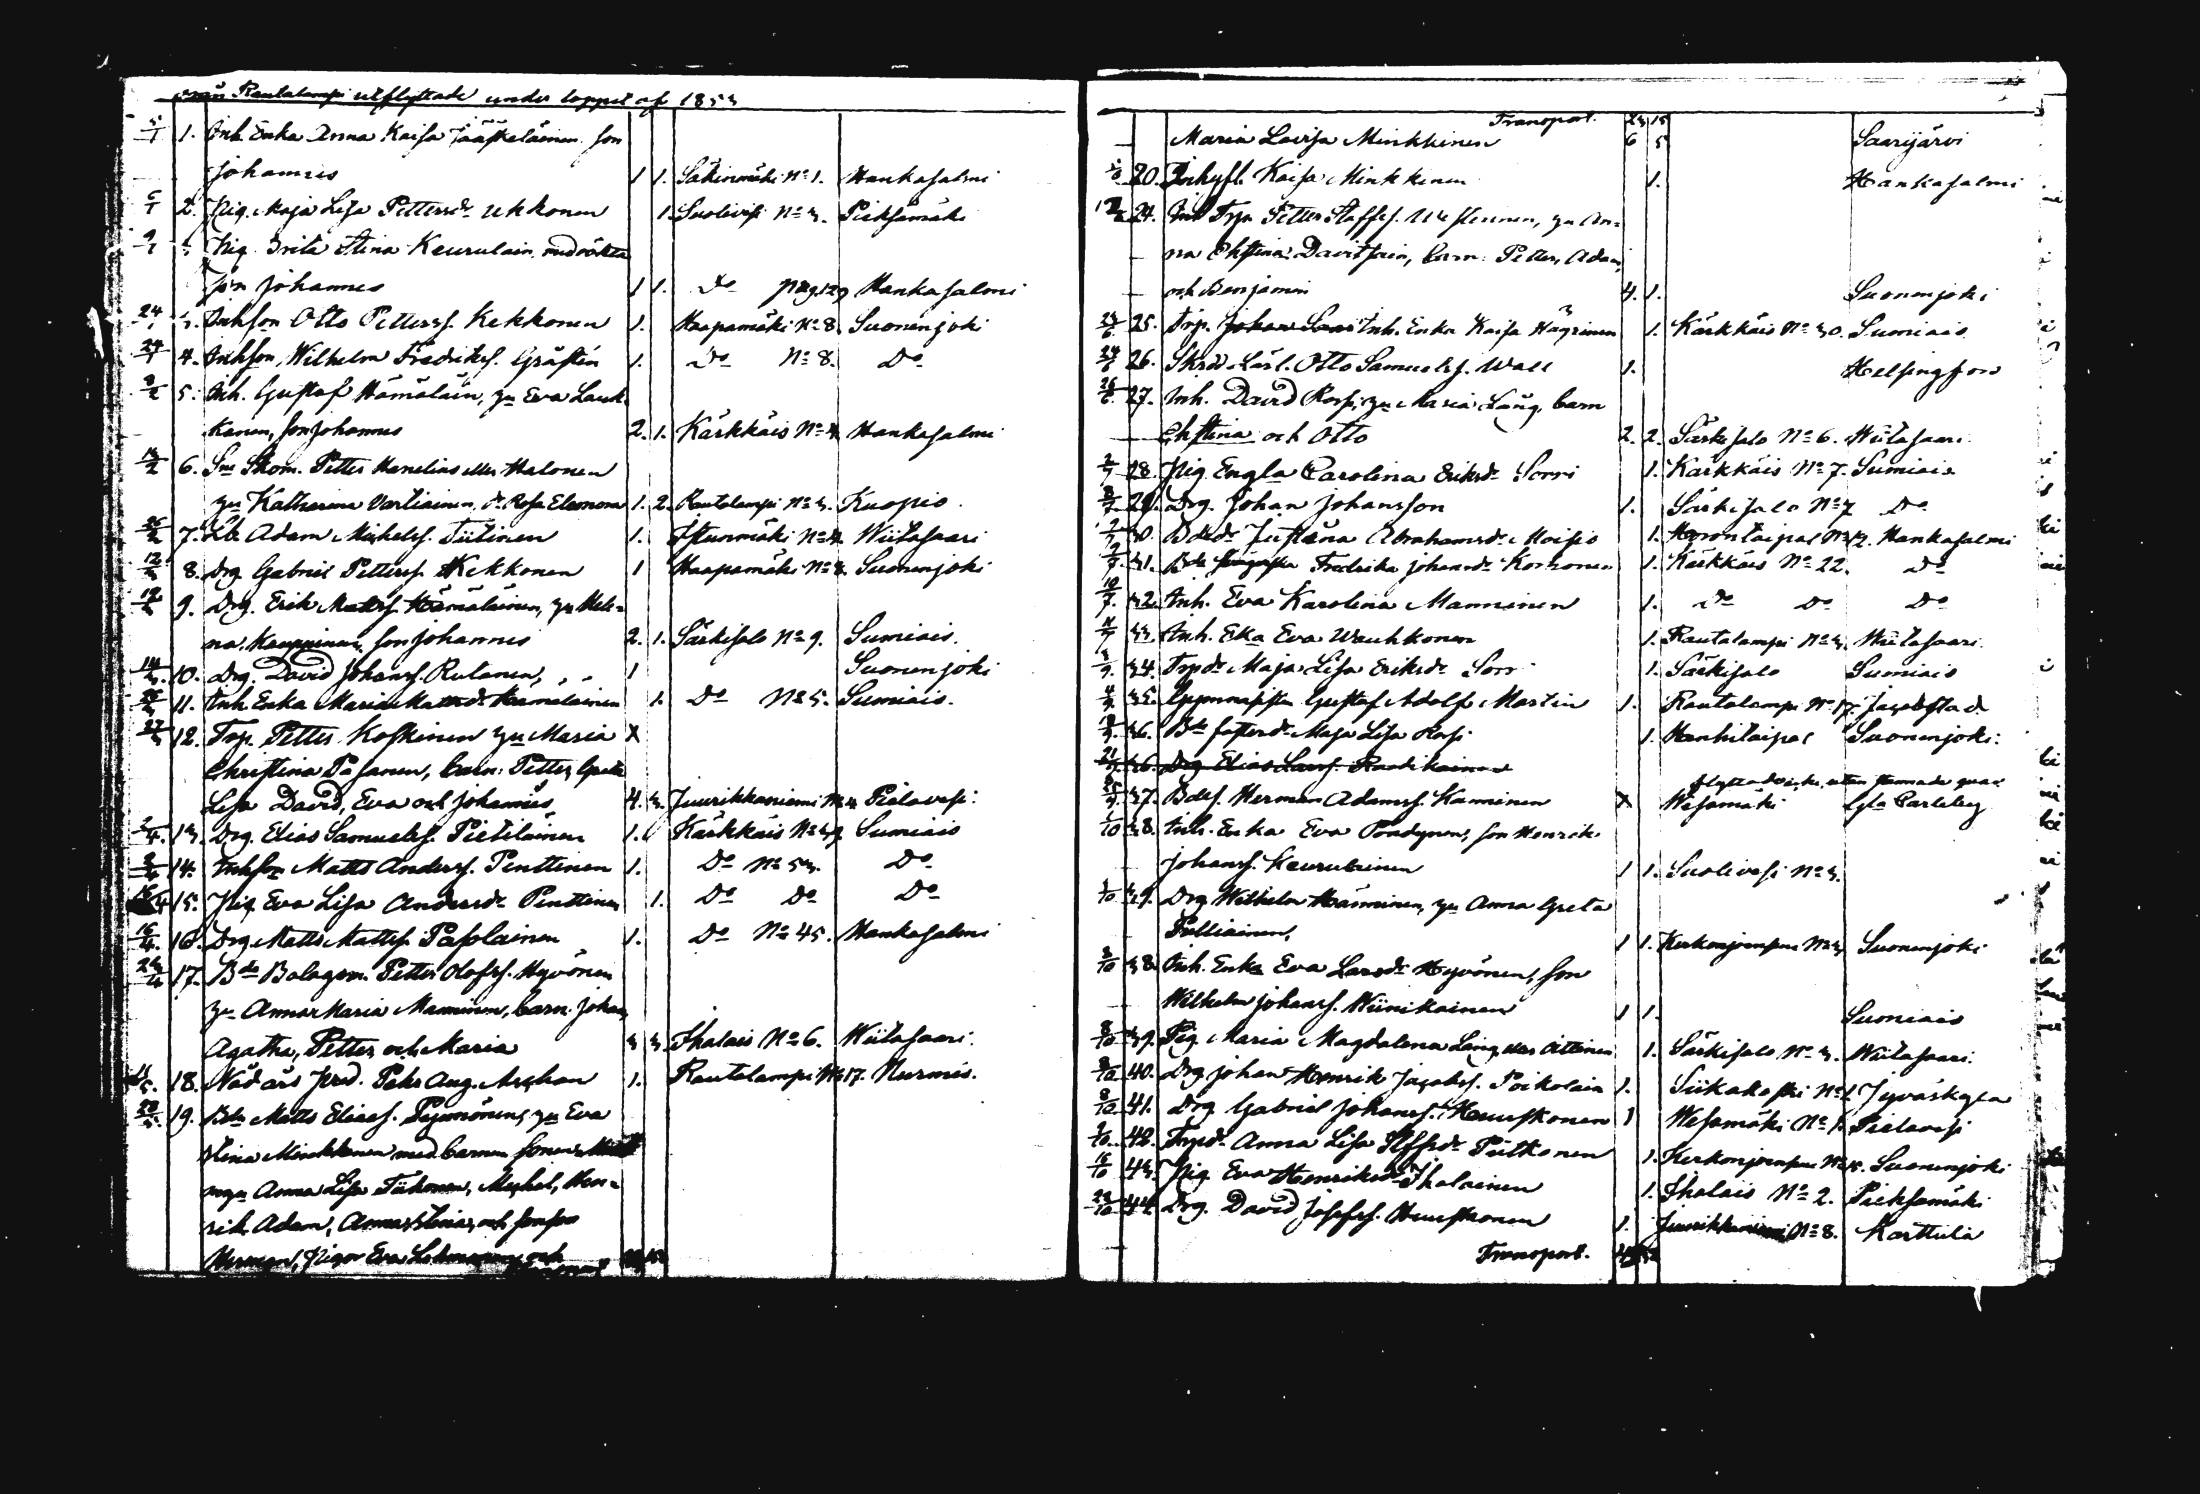 från Rautalampi utflyttade under loppet af 1853
5/1 1. Inh. Enka Anna Kaisa Jääskeläinen son
Johannes 1 1. Säkinmäki No 1. Hankasalmi
6/1 2. Pig. Maja Lisa Pettersdr Ukkonen 1. Suolivesi No 3. Pieksämäki
9/1 Pig. Brita Stina Keurulain. med oäkta
son Johannes 1 1. Do pag. 129 Hankasalmi
24/1 3. Inhson Otto Petterss. Kekkonen 1. Haapamäki No 8. Suonenjoki
24/1 4. Inhson Wilhelm Fredrikss. Grästen 1. Do No 8. Do
8/2 5. Inh. Gustaf Hämäläin, hu Eva Lauk-
kanen, son Johannes 2. 1. Kärkkäis No 4 Hankasalmi
6. Skom. Petter Hanelius eller Halonen
hu Katharina Vartiainen, dr. Rosa Eleonora 1. 2. Rautalampi No 3. Kuopio.
7. Adam Michelss. Tiitinen 1. Istunmäki No 4 Wiitasaari
12/3 8. Drg Gabriel Petterss. Kekkonen 1 Haapamäki No 8. Suonenjoki
9. Drg. Erik Matss. Hämäläinen, hu Hele-
na Kauppinen, son Johannes 2. 1. Särkisalo No 9. Sumiais.
10. Drg. David Johanss. Rutanen, 1 Suonenjoki
11. Inh. Enka Maria Mattsdr Hämäläinen 1. Do No 5. Sumiais.
27/3 12. Trp. Petter Koskinen hu Maria X
Christina Pasanen, barn: Petter, Greta
Lisa David, Eva och Johannes 4. 3. Juurikkaniemi No 4 Pielavesi.
13. Drg. Elias Samuelss. Pietiläinen 1. Kärkkäis No 39 Sumiais
14. Inhson Matts Anderss. Penttinen 1. Do No 53. Do
15. Pig Eva Lisa Andersdr Penttinen 1. Do Do Do
16/4. 16. Drg Matts Mattss. Papolainen 1. Do No 45. Hankasalmi
17. Bde Bolagsm. Petter Olofss. Hyvönen
hu Anna Maria Manninen, barn. Johan,
Agatha, Petter och Maria 3 3. Ihalais No 6. Wiitasaari.
18. Nådårs pred. Pehr Aug. Arghan 1. Rautalampi No 17. Nurmis.
19. Bde Matts Eliass. Pynnönen, hu Eva
Stina Minkkinen med barnen sonen
mgu Anna Lisa Tiihonen, Michel, Hen-
rik, Adam, Anna Stina, och
Herman, Pigor Eva och
Transport. 23 15
Maria Lovisa Minkkinen 6 5 Saarijärvi
20. Inhysfl. Kaisa Minkkinen 1. Hankasalmi
24. Inh Trp. Petter Staffss. hu An-
na Christina Davitsain, barn: Petter, Adam,
och Benjamin 4. 1. Suonenjoki
25. Trp. Inh. Enka Kaisa Hägrinen 1. Kärkkäis No 30. Sumiais
26. Skrädd. Lärl. Otto Samuelss. Wall 1. Helsingfors
27. Inh. David Rossi, hu Maria Läng, barn
Christina och Otto 2. 2. Särkisalo No 6. Wiitasaari.
28. Pig Engla Carolina Eriksdr Sorri 1. Kärkkäis No 7. Sumiais
29. Drg. Johan Johansson 1. Särkisalo No 7 Do
30. Bdedr Justina Abrahamsdr Moisio 1. No 12. Hankasalmi
31. Bde Fredrika Johansdr Korhonen 1. Kärkkäis No 22. Do
10/7. 32. Inh. Eva Karolina Manninen 1. Do Do Do
11/7 33. Inh. Eka Eva Wauhkonen 1. Rautalampi No 3. Wiitasaari.
34. Trpdr Maja Lisa Eriksdr Sorri 1. Särkisalo Sumiais
35. Gymnasisten Gustaf Adolf Martin 1. Rautalampi No 17. Jacobstad.
36. Bde fosterdr. Maja Lisa Rossi 1. Hanhitaipal Suonenjoki.
36. Drg Elias Larss. Raatikainen
flyttade icke, utan stannade qvar.
37. Bdes. Herman Adamss. Kanninen X Wesamäki Gla Carleby
38. Inh. Enka Eva Pondynen, son Henrik
Johanss. Keurulainen 1 1. Suolivesi No 3.
39. Drg Wilhelm Hänninen, hu Anna Greta
Pulliainen, 1 1. Kerkonjoensuu No 3 Suonenjoki
38. Inh. Enka Eva Larsdr Hyvönen, son
Wilhelm Johanss. Wiinikainen 1 1. Sumiais
8/10 39. Pig Maria Magdalena Läng eller Oittinen 1. Särkisalo No 3. Wiitasaari.
8/10 40. Drg Johan Henrik Jacobss. Poikolain 1. Siikakoski No 1 Jyväskyla
8/10 41. Drg Gabriel Johanss. Heuskonen 1 Wesamäki No 1. Pielavesi
42. Trpdr. Anna Lisa Stffsdr Piitkonen 1. Kerkonjoensuu No 15. Suonenjoki
43. Pig Eva Henriksdr Ihalainen 1. Ihalais No 2. Pieksämäki
44. Drg. David Josefss. Heuskonen 1. Juurikkaniemi No 8. Karttula
Transport.